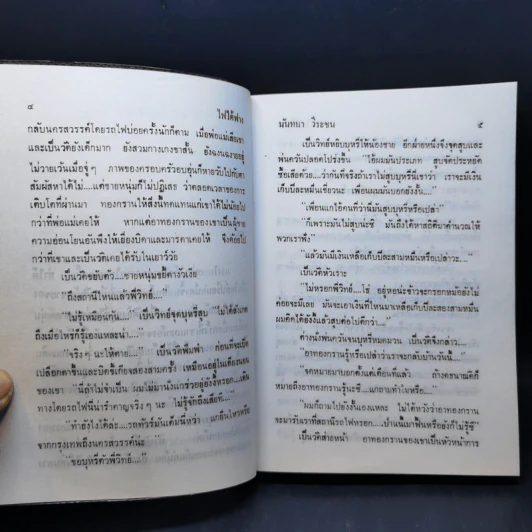 ๔ ไฟใต้ฟาง
กลับนครสวรรค์โดยรถไฟบ่อยครั้งนักก็ตาม เมื่อพ่อแม่เสียเขา
และเป็นวัตียังเด็กมาก ยังสวมกางเกงขาสั้น ยังงงงนงายอยู่
ไม่วายเว้นเมื่อจู่ๆ ภาพของครอบครัวอบอุ่นก็หายวับไปกับตา
สัมผัสหาได้ไม่....แต่ชายหนุ่มก็ไม่ปฏิเสธ ว่าตลอดเวลาของการ
เติบโตที่ผ่านมา ทองกรานให้สิ่งทดแทนแก่เขาได้ไม่น้อยไป
กว่าที่พ่อแม่เคยให้ หากแต่อาทองกรานของเขาเป็นผู้ชาย
ความอ่อนโยนอันพึงได้เยี่ยงบิดาและมารดาเคยให้ จึงด้อยไป
กว่าที่เขาและเป็นวัตเคยได้รับในเยาว์วัย
เป็นวัตขยับตัว....ชายหนุ่มขยี้ตางัวเงีย
"ถึงสถานีไหนแล้วพี่วิทย์...."
"ไม่รู้เหมือนกัน...." เป็นวิทย์จุดบุหรี่สูบ "ไม่ได้สังเกต
ถึงเมื่อไหร่ก็รู้เองแหละน่า...."
"จริงๆ นะให้ตาย...." เป็นวัตพึมพำ ก่อนที่จะเปิด
เปลือกตาขึ้นและบิดขี้เกียจสองสามครั้ง เหมือนอยู่ในเตียงนอน
ของเขา "นี่ถ้าไม่จำเป็น ผมไม่มีมานั่งแกร่วอยู่ยังงี้หรอก....เดิน
ทางโดยรถไฟนี่น่ารำคาญจริงๆ นะ ไม่รู้จักถึงเสียที...."
"ทำยังไงได้ละ....รถทัวร์มันเต็มนี่หว่า แกยืนไหวหรือ
จากกรุงเทพถึงนครสวรรค์น่ะ"
"ขอบุหรี่ตัวพี่วิทย์...."
มันทนา วีระชน ๕
เป็นวิทย์หยิบบุหรี่ให้น้องชาย อีกฝ่ายหนึ่งจึงจุดสูบและ
พ่นควันปลอดโปร่งขึ้น "ไอ้ผมมันประเภท สูบจัดประหยัด
ซื้อเสียด้วย....ว่ากันที่จริงถ้าเราไม่สูบบุหรี่นี่เขาว่า เราจะมีเงิน
เก็บปีละหมื่นเชียวนะ เพื่อนผมมันบอกยังงั้น...."
"เพื่อนแกไอ้คนที่ว่านี่มันสูบบุหรี่หรือเปล่า"
"ก็เพราะมันไม่สูบน่ะซี มันถึงได้หาสถิติมาคำนวณให้
พวกเราฟัง"
"แล้วมันมีเงินเหลือเก็บปีละสามหมื่นหรือเปล่าวะ...."
เป็นวัตหัวเราะ
"ไม่หรอกพี่วิทย์....โธ่ อยู่หอน่ะข้าวจะกรอกหม้อยังไม่
ค่อยจะมีเลย มันจะเอาเงินที่ไหนมาเหลือเก็บปีละสองสามหมื่น
ผมคิดได้ยังงี้แล้วสูบต่อไปดีกว่า...."
ต่างนั่งพ่นควันจนบุหรี่หมดมวน เป็นวัตจึงกล่าว...
"อาทองกรานรู้หรือเปล่าว่าเราจะกลับบ้านวันนี้...."
"จดหมายมาบอกตั้งแต่เมื่อก่อนนี้แล้ว ถ้าคธนาณัติก็
หมายถึงอาทองกรานรู้น่ะซี....แกถามทำไมหรือ...."
"ผมก็ถามไปยังงั้นเองแหละ ไม่ได้หวังว่าอาทองกราน
จะมารับเราที่สถานีรถไฟหรอก....ป่านนี้เมาฟื้นหรือยังก็ไม่รู้ซี"
เป็นวัตส่ายหน้า อาทองกรานของเขาเป็นหัวหน้าการ